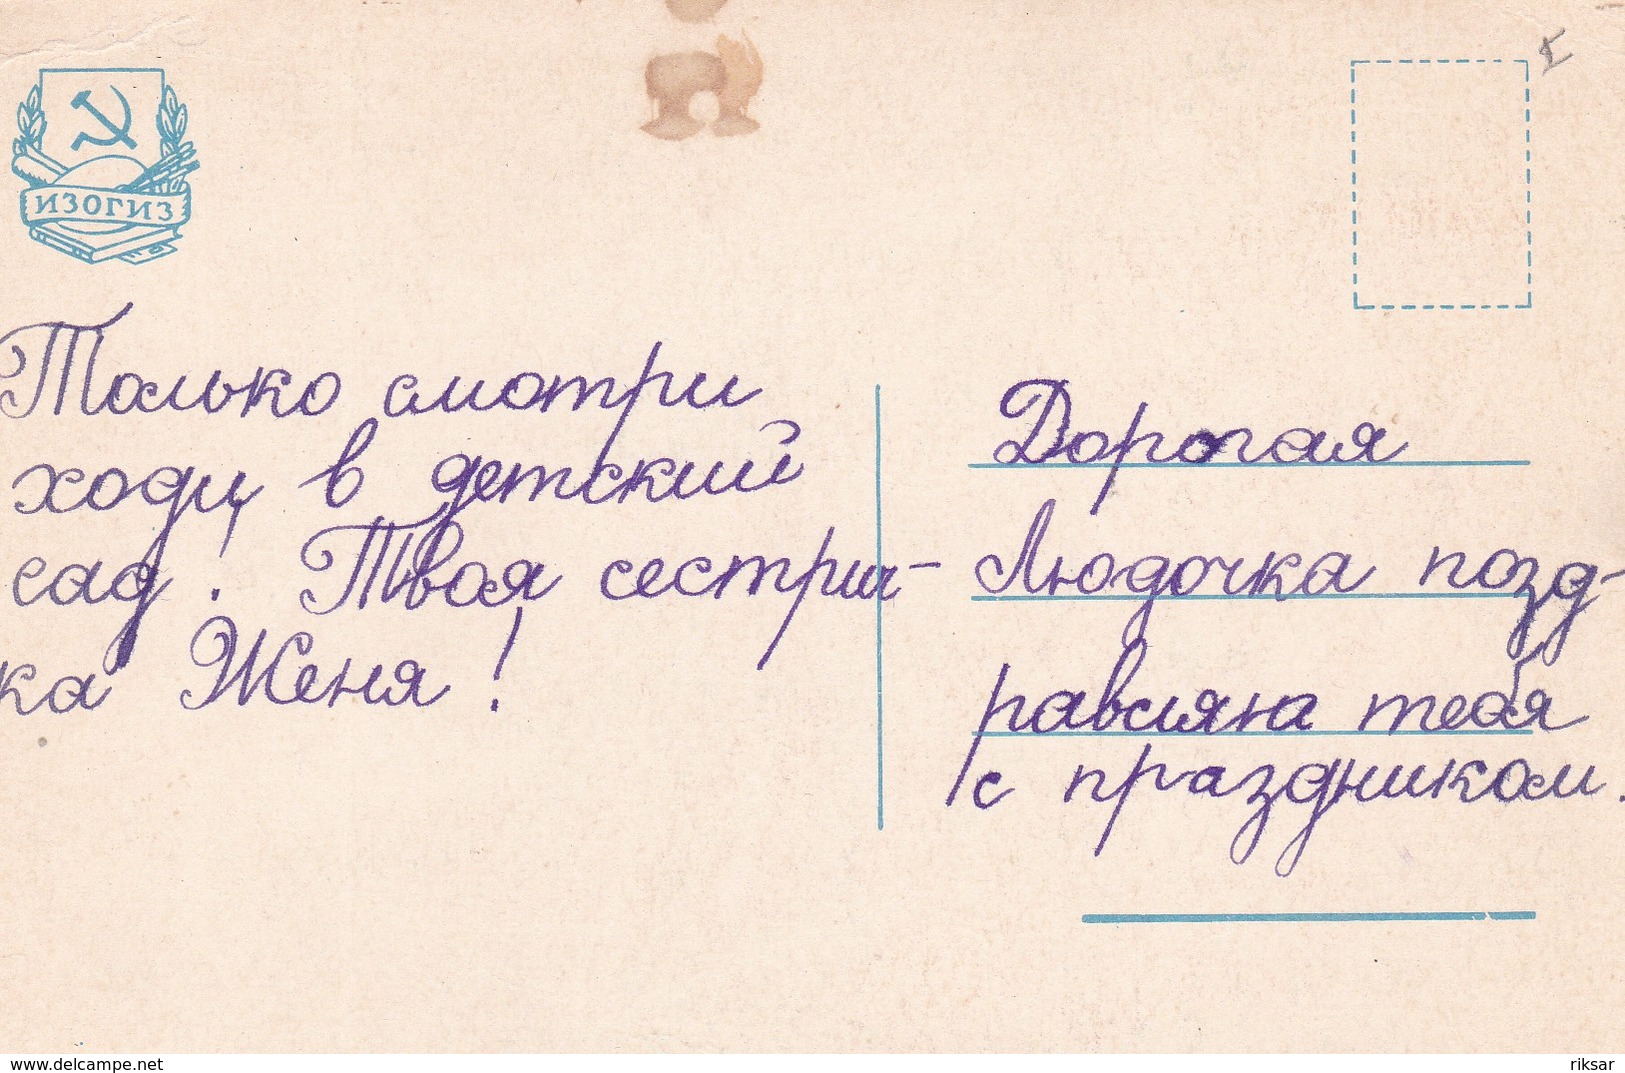 ИЗОГИЗ
Дорогая
Людочка позд-
равляю тебя
с праздником.
Только смотри
ходи в детский
сад! Твоя сестрич-
ка Женя!
www.delcampe.net
riksar